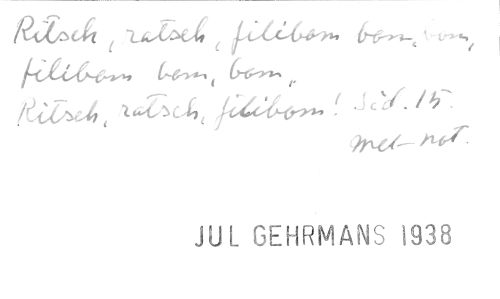 Ritsch, ratsch, filibom bom, bom,
filibom bom, bom,
Ritsch, ratsch, filibom! Sid. 15.
mel-not.
JUL GEHRMANS 1938